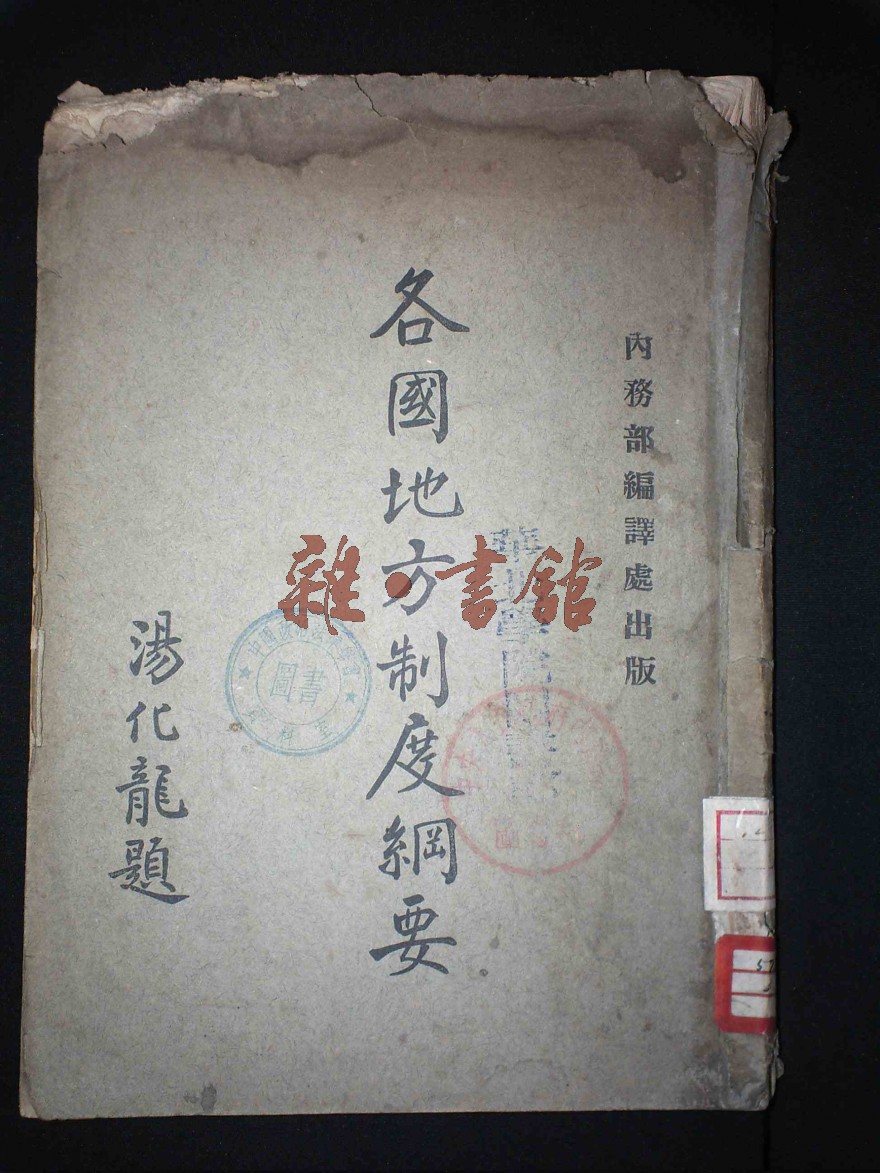 內務部編譯處出版
各國地方制度綱要
湯化龍題
雜·書館
圖書